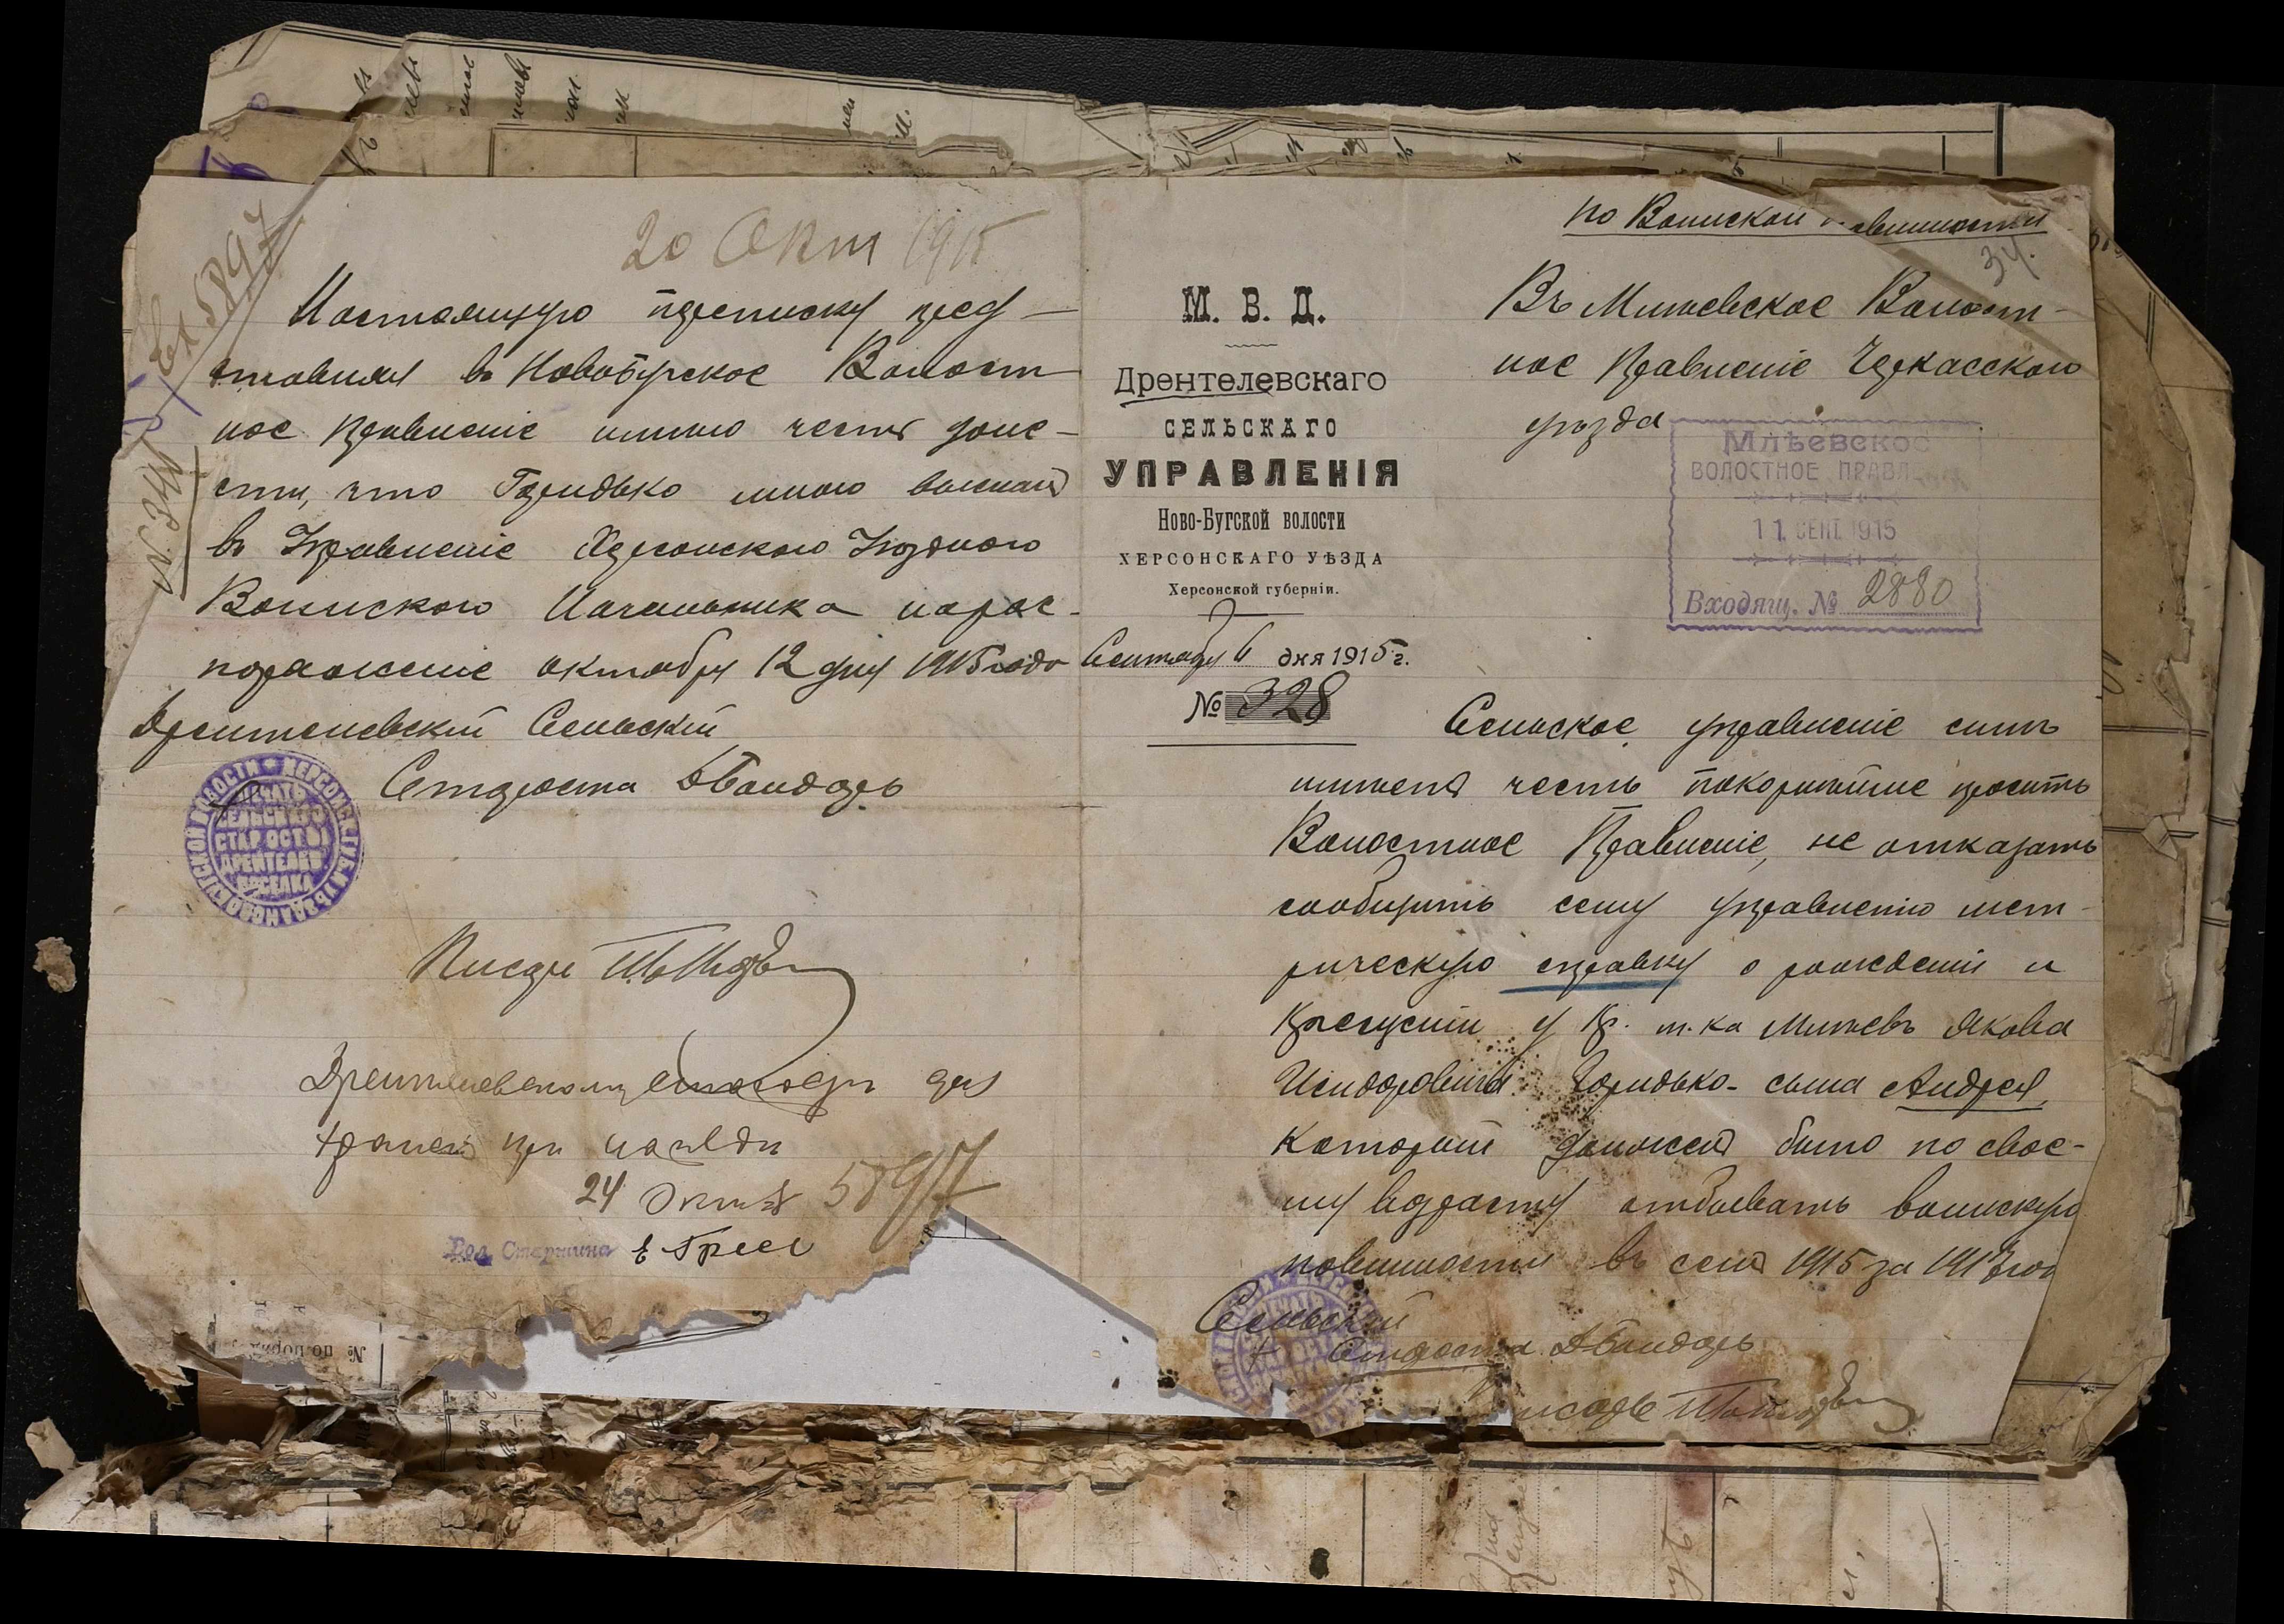 20 Окт 1915
Вх 5897
№ 344
Настоящую переписку пред-
ставляя въ Новобугское Волост
ное Правленіе имѣю честь доне-
сти, что Горидько мною высланъ
въ Управленіе Херсонского Уѣздного
Воинского Начальника на рас-
поряженіе октября 12 дня 1915 года
Дрентелевскій Сельскій
Староста Бондарь
ПЕЧАТЬ
СЕЛЬСКАГО
СТАРОСТЫ
ДРЕНТЕЛЕВ.
ПОСЕЛКА
Писарь
Дрентелевскому старость для
24 Окт 5897
Вол Старшина
М. В. Д.
Дрентелевскаго
СЕЛЬСКАГО
УПРАВЛЕНІЯ
Ново-Бугской волости
ХЕРСОНСКАГО УѢЗДА
Херсонской губерніи.
Сентября 6 дня 1915 г.
№ 328
по Воинской повинности
34.
Въ Млѣевское Волост-
ное Правленіе Черкасского
уѣзда
Млѣевское
ВОЛОСТНОЕ ПРАВЛ
11 СЕНТ. 1915
Входящ. № 2880
Сельское управленіе симъ
имѣетъ честь покорнѣйше просить
Волостное Правленіе, не отказать
сообщить сему управленію мет-
рическую справку о рожденіи и
крещеніи у кр. м-ка Млѣевъ Якова
Исидоровича Горидько - сына Андрея,
который долженъ было по свое-
му возрасту отбывать воинскую
повинность въ семъ 1915 за
Сельскій
Староста Бондарь
исарь
№ по поряд